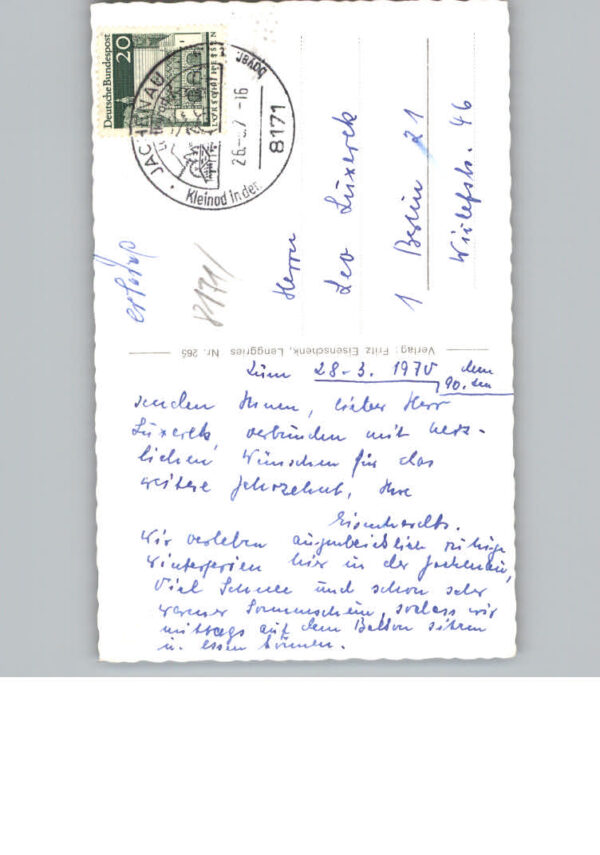 Deutsche Bundespost
20
LORSCH/HESSEN
JACHENAU
bayer.
26.-3.7 -16
8171
Kleinod in der
8171/
Herrn
Leo Luxereck
1 Berlin 21
Wiclefstr. 46
Verlag: Fritz Eisenschenk, Lenggries Nr. 265
Zum 28-3. 1970 dem
90. ten
senden Ihnen, lieber Herr
Luxereck, verbunden mit herz-
lichen Wünschen für das
weitere Jahrzehnt, Ihre
Wir verleben augenblicklich ruhige
Winterferien hier in der Jachenau,
Viel Schnee und schon sehr
warmer Sonnenschein, sodass wir
mittags auf dem Balkon sitzen
u. essen können.